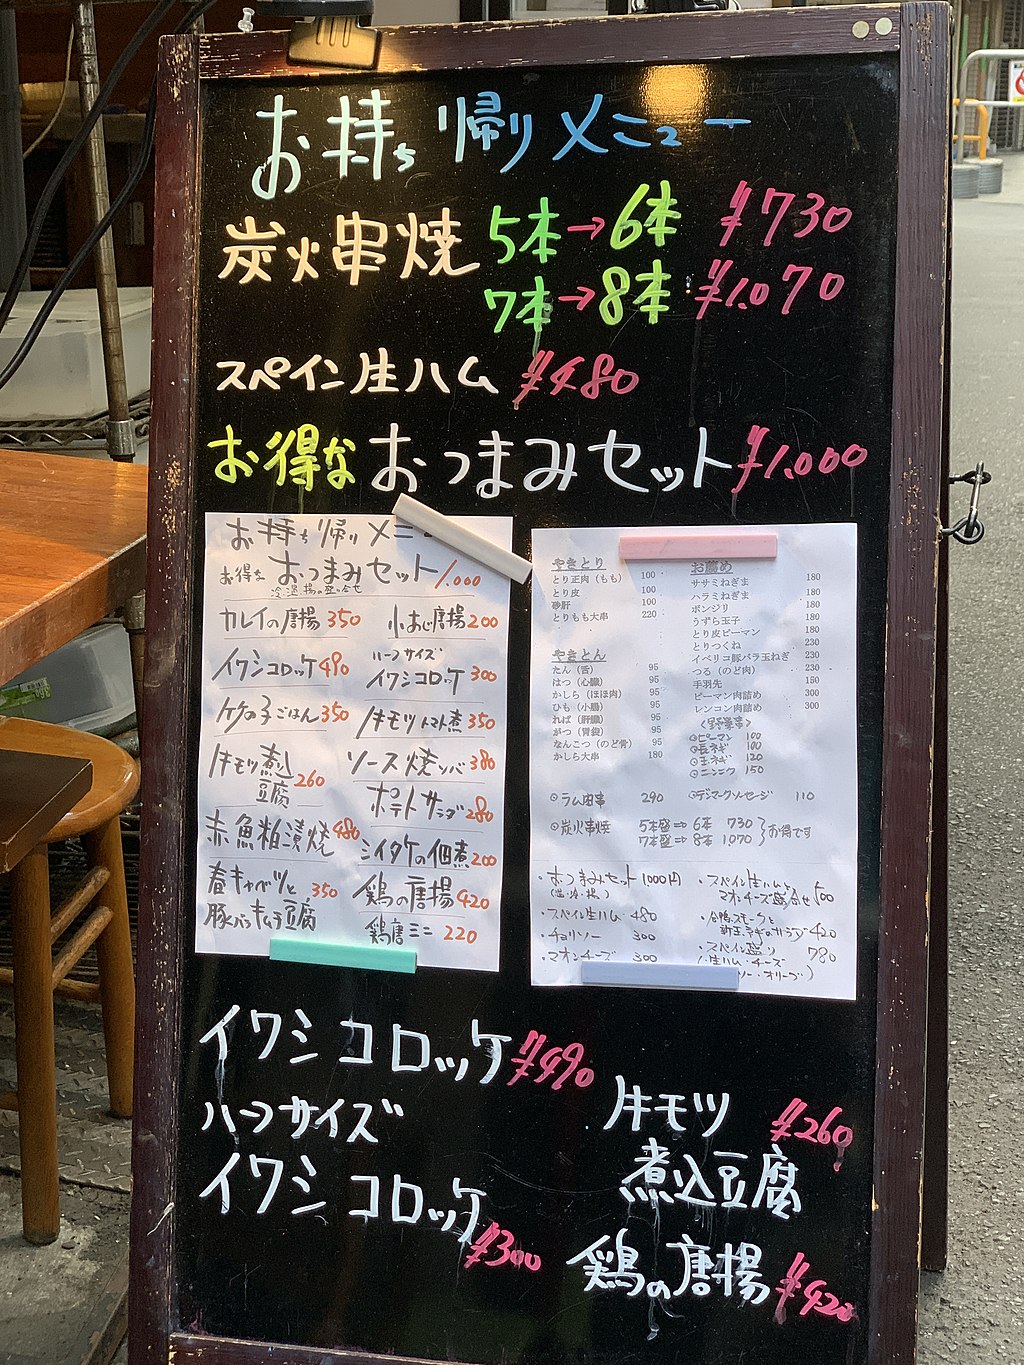 お持ち帰りメニュー
炭火串焼 5本→6本 ¥730
7本→8本 ¥1.070
スペイン生ハム ¥480
お得な おつまみセット ¥1.000
お持ち帰りメニュー
お得な おつまみセット 1.000
冷・温・揚の盛り合せ
カレイの唐揚 350
小あじ唐揚 200
イワシコロッケ 490
ハーフサイズ
イワシコロッケ 300
竹の子ごはん 350
牛モツトマト煮 350
牛モツ煮込
豆腐 260
ソース焼ソバ 380
ポテトサラダ 280
赤魚粕漬焼 480
シイタケの佃煮 200
春キャベツと
豚バラキムチ豆腐 350
鶏の唐揚 420
鶏唐ミニ 220
やきとり
とり正肉（もも） 100
とり皮 100
砂肝 100
とりもも大串 220
やきとん
たん（舌） 95
はつ（心臓） 95
かしら（ほほ肉） 95
ひも（小腸） 95
ればー（肝臓） 95
がつ（胃袋） 95
なんこつ（のど骨） 95
かしら大串 180
お薦め
ササミねぎま 180
ハラミねぎま 180
ボンジリ 180
うずら玉子 180
とり皮ピーマン 180
とりつくね 230
イベリコ豚バラ玉ねぎ 230
つる（のど肉） 230
手羽先 150
ピーマン肉詰め 300
レンコン肉詰め 300
〈野菜串〉
⊙ピーマン 100
⊙長ネギ 100
⊙玉ネギ 120
⊙ニンニク 150
⊙ラム肉串 290
⊙デンマークソーセージ 110
⊙炭火串焼 5本盛⇒6本 730
7本盛⇒8本 1,070 お得です
・おつまみセット 1000円
（温・冷・揚）
・スペイン生ハム 480
・チョリソー 300
・マオンチーズ 300
・スペイン生ハムと
マオンチーズ盛合せ 600
・合鴨スモークと
新玉ネギのサラダ 420
・スペイン盛り 780
（生ハム・チーズ
ソー・オリーブ）
イワシコロッケ ¥490
ハーフサイズ
イワシコロッケ
¥300
牛モツ ¥260
煮込豆腐
鶏の唐揚 ¥420